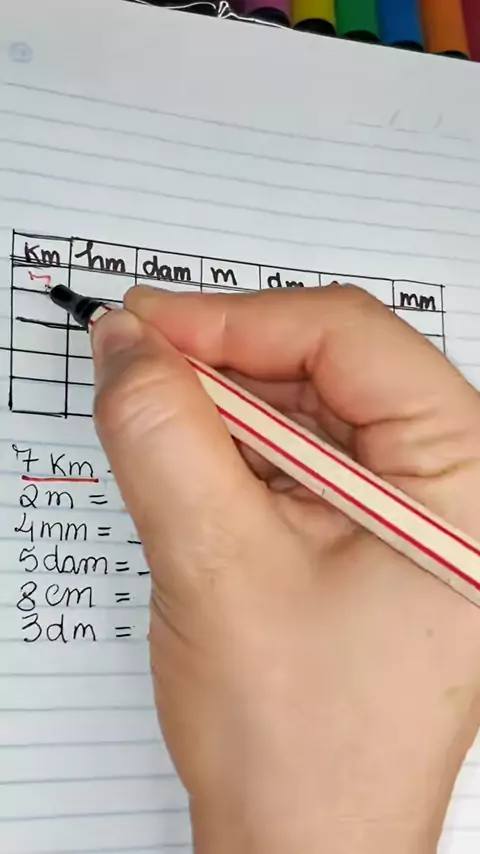 Km hm dam m dm mm
7
7 Km
2m =
4mm =
5dam =
8cm =
3dm =